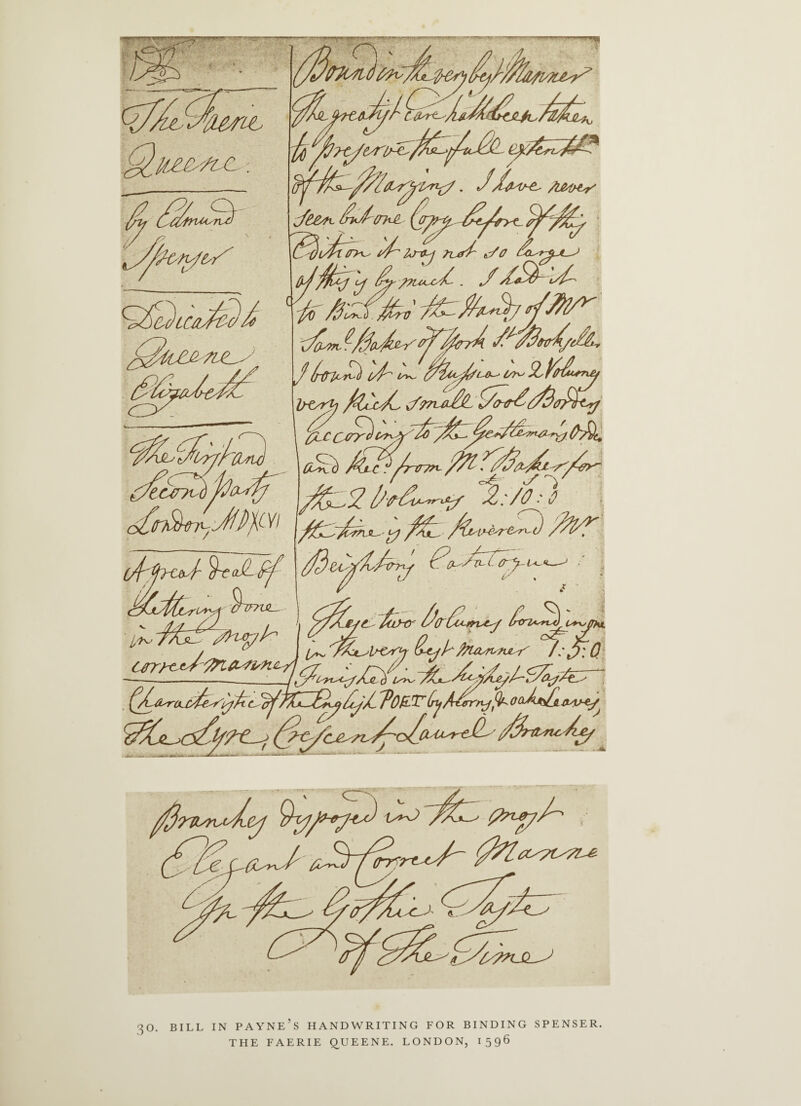 The Faerie
Queene.
by Edmund
Spenser
Dedicated to
Queene
Elizabeth
The First and
Second Parts
London, MDXCVI
A great deal of
Lettering done
in the most
correct manner
Bound in the very best Manner
The greatest Care hath been taken
to preserve the full extent
of the Margins. I have never
seen but one Copy before of this
Edition it was not so large
as this is by much. I had it
to Bind thro' the Hands of Mr
Saml Baker of York St Bookseller
I bound it in Russia in 2 Volumes
very thick small Tool Borders
according to the Gentleman's Ordr.
and Recd from Mr. Baker for
the 2 Volumes 2:10:0
the time is the Reverend Mr
Beighton's Catalogue.
These two Volumes bound in
in the very best manner 7:5:0
Finished in the highest Taste
Characteristic of The English POET by Acorns, & oak Leaves,
The Lyre, Crescent Laurel Branches
Branches disposed in the most
Elegant and Correct Manne
In the Gothic Taste
of The Time
30. BILL IN PAYNE'S HANDWRITING FOR BINDING SPENSER.
THE FAERIE QUEENE. LONDON, 1596